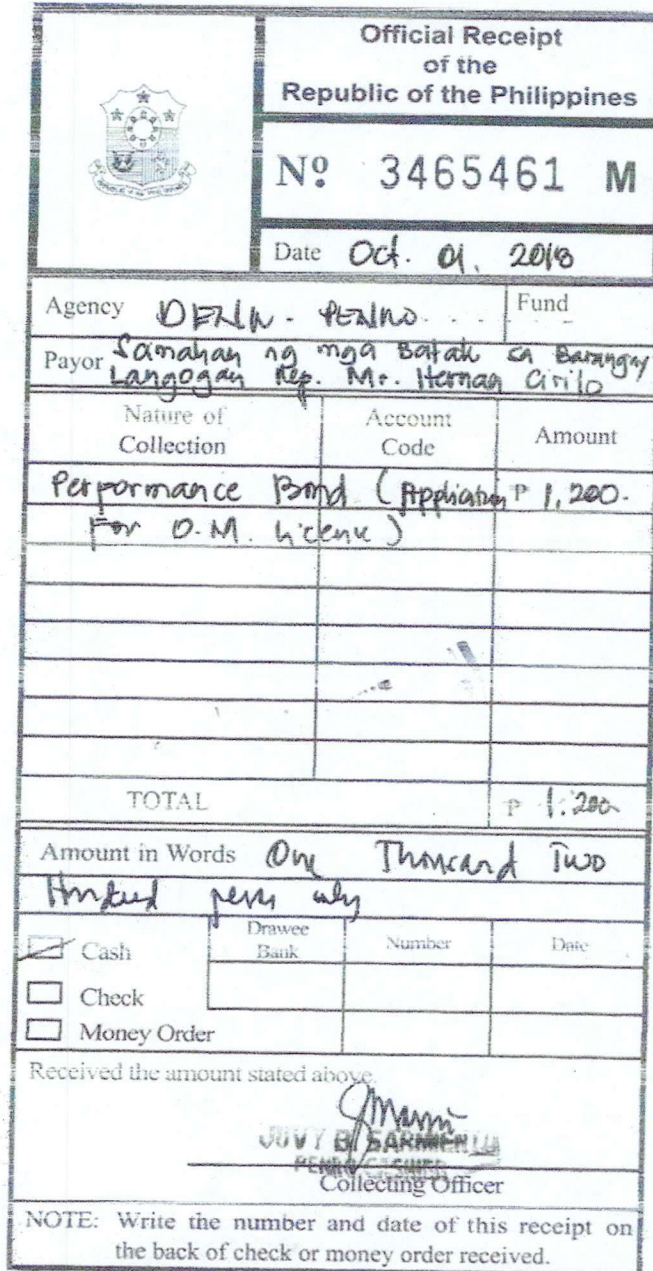 Official Receipt
of the
Republic of the Philippines
REPUBLIC OF THE PHILIPPINES
Nº 3465461 M
Date Oct. 01, 2018
Agency DENR - PENRO
Fund
Payor Samahan ng mga Batak sa Barangay
Langogan Rep. Mr. Hernan Cirilo
Nature of Collection
Account Code
Amount
Performance Bond (Application P 1,200.-
For O.M. License)
TOTAL P 1,200
Amount in Words One Thousand Two
Hundred pesos only
Cash
Drawee Bank
Number
Date
Check
Money Order
Received the amount stated above.
JUVY B. SARMIENTO
PENRO CASHIER
Collecting Officer
NOTE: Write the number and date of this receipt on
the back of check or money order received.